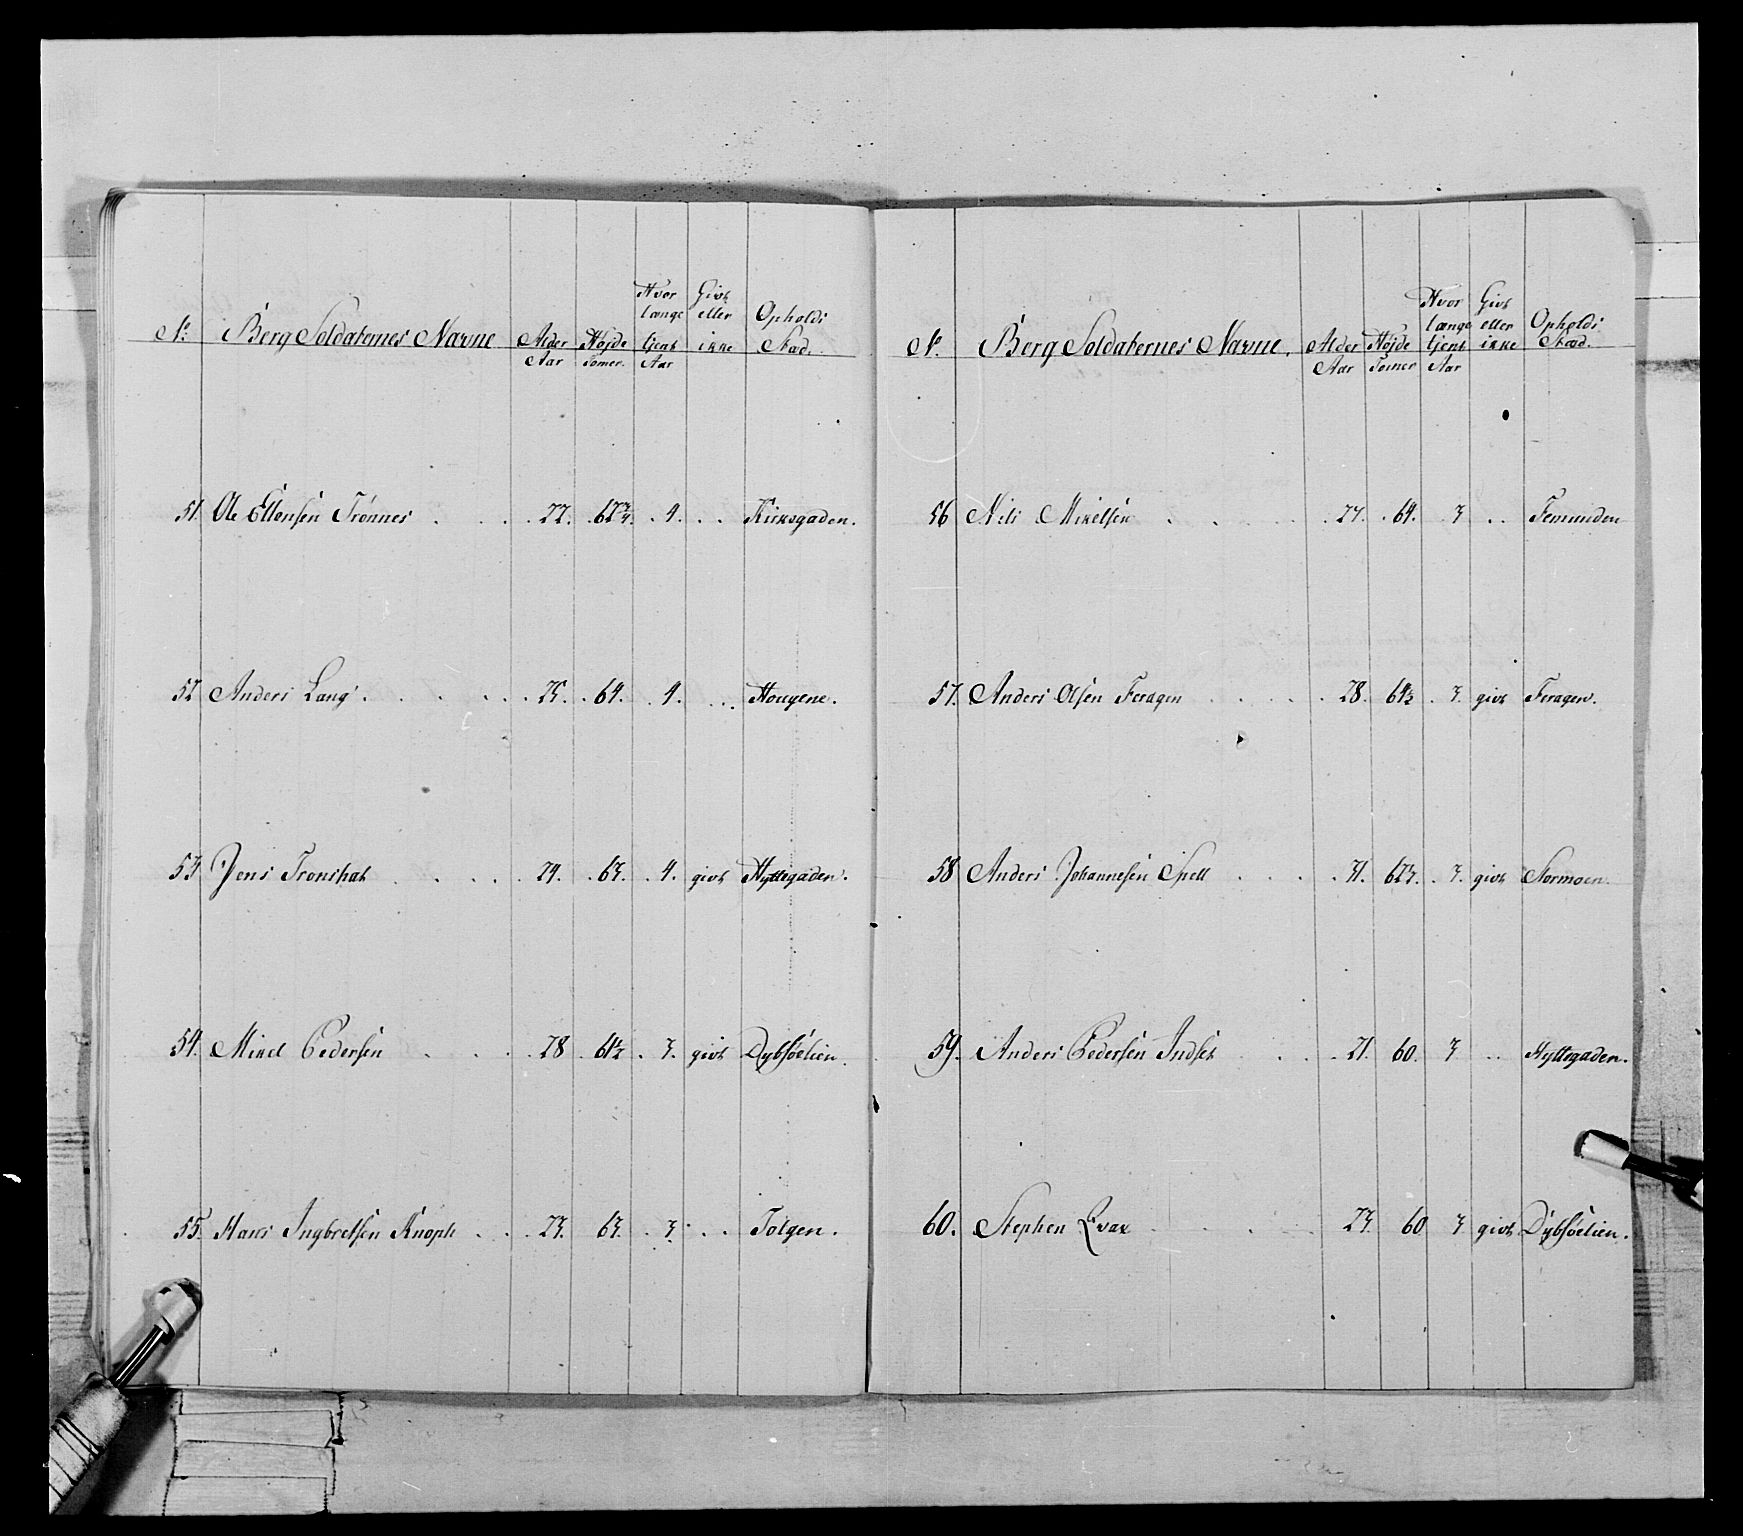 No. Berg Soldaternes Navne Alder Aar Højde Tomer. Hvor længe tjent Aar Givt eller ikke Opholds Stæd.
51. Ole Ellensen Trönnes . . . . 22. . 62 3/4. . 4. . . Kirksgaden.
52 Anders Lang . . . . . . 25. . 64. . 4. . . . Hougene.
53 Jens Tronshat . . . . 24. . 63. . 4. givt Hyttegaden.
54. Mikel Pedersen . . . . 28 . 61 1/2 . 3. givt Dybsöelien.
55. Hans Ingbretsen Knoph . . . 23. 63. . 3. . . Tolgen.
No. Berg Soldaternes Navne. Alder Aar Højde Tomer Hvor længe tjent Aar Givt eller ikke Opholds Stæd.
56 Nils Mikelsen . . . . . 27. . 64. 3 . . Femunden
57. Anders Olsen Feragen . . . . . 28. 64 1/2 . 3. givt Feragen.
58 Anders Johannesen Spell . . . . 31. 62 3. . 3. givt Stormoen.
59. Anders Pedersen Indset . . . 21. 60. 3 . . Hyttegaden.
60. Stephen Qvax . . . . . 23. 60 3 givt Dybsöelien.